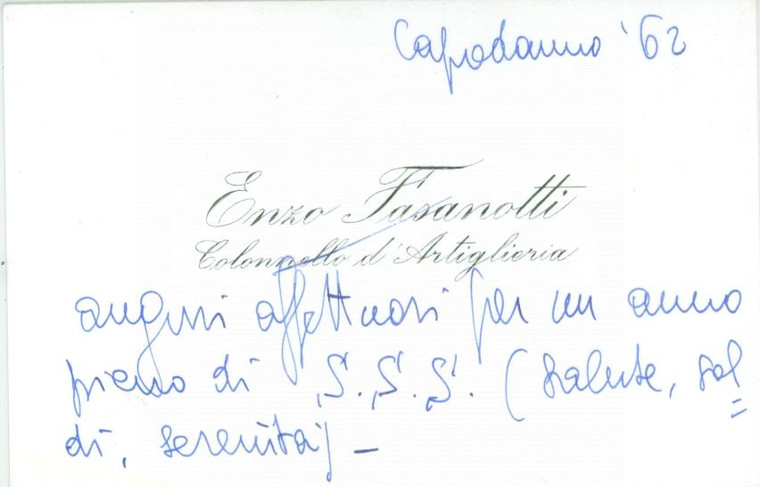 Capodanno '62
Enzo Fasanotti
Colonnello d'Artiglieria
auguri affettuosi per un anno
pieno di S.S.S. (salute, sol=
di, serenità) -